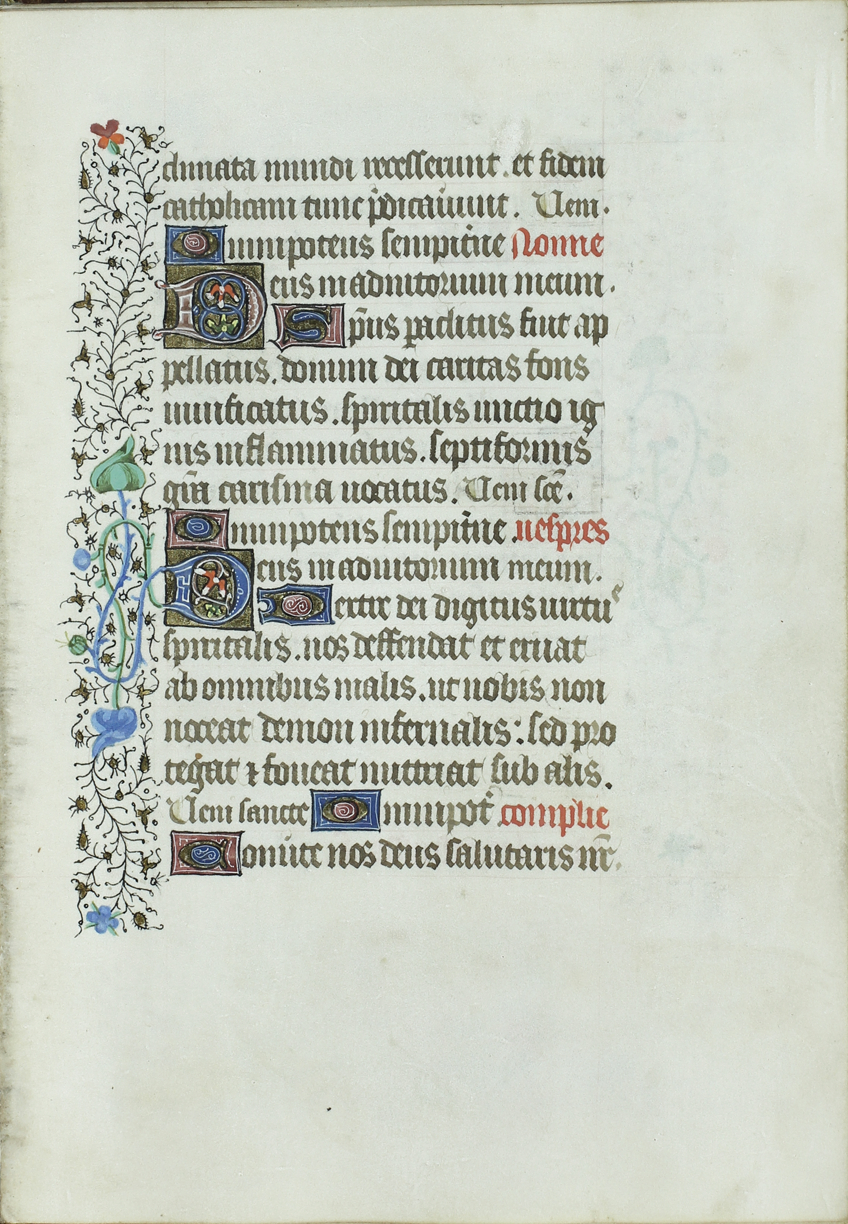 climata mundi recesserunt. et fidem
catholicam tunc p̄dicauiuut. Veni.
Omnipotens sempit̄ne Nonne
Deus in adiutorium meum.
Sp̄us paclitus fuit ap
pellatus. donum dei caritas fons
uiuificatus. spiritalis unctio ig
nis inflammatus. septiformis
gr̄a carisma uocatus. Veni sc̄e.
Omnipotens sempit̄ne uespres
Deus in adiutorium meum.
Dextre dei digitus uirtus
spiritalis. nos deffendat et eruat
ab omnibus malis. ut nobis non
noceat demon infernalis: sed pro
tegat ⁊ foueat nutriat sub alis.
Veni sancte Omnipot̄ complie
Conu̾te nos deus salutaris nr̄.